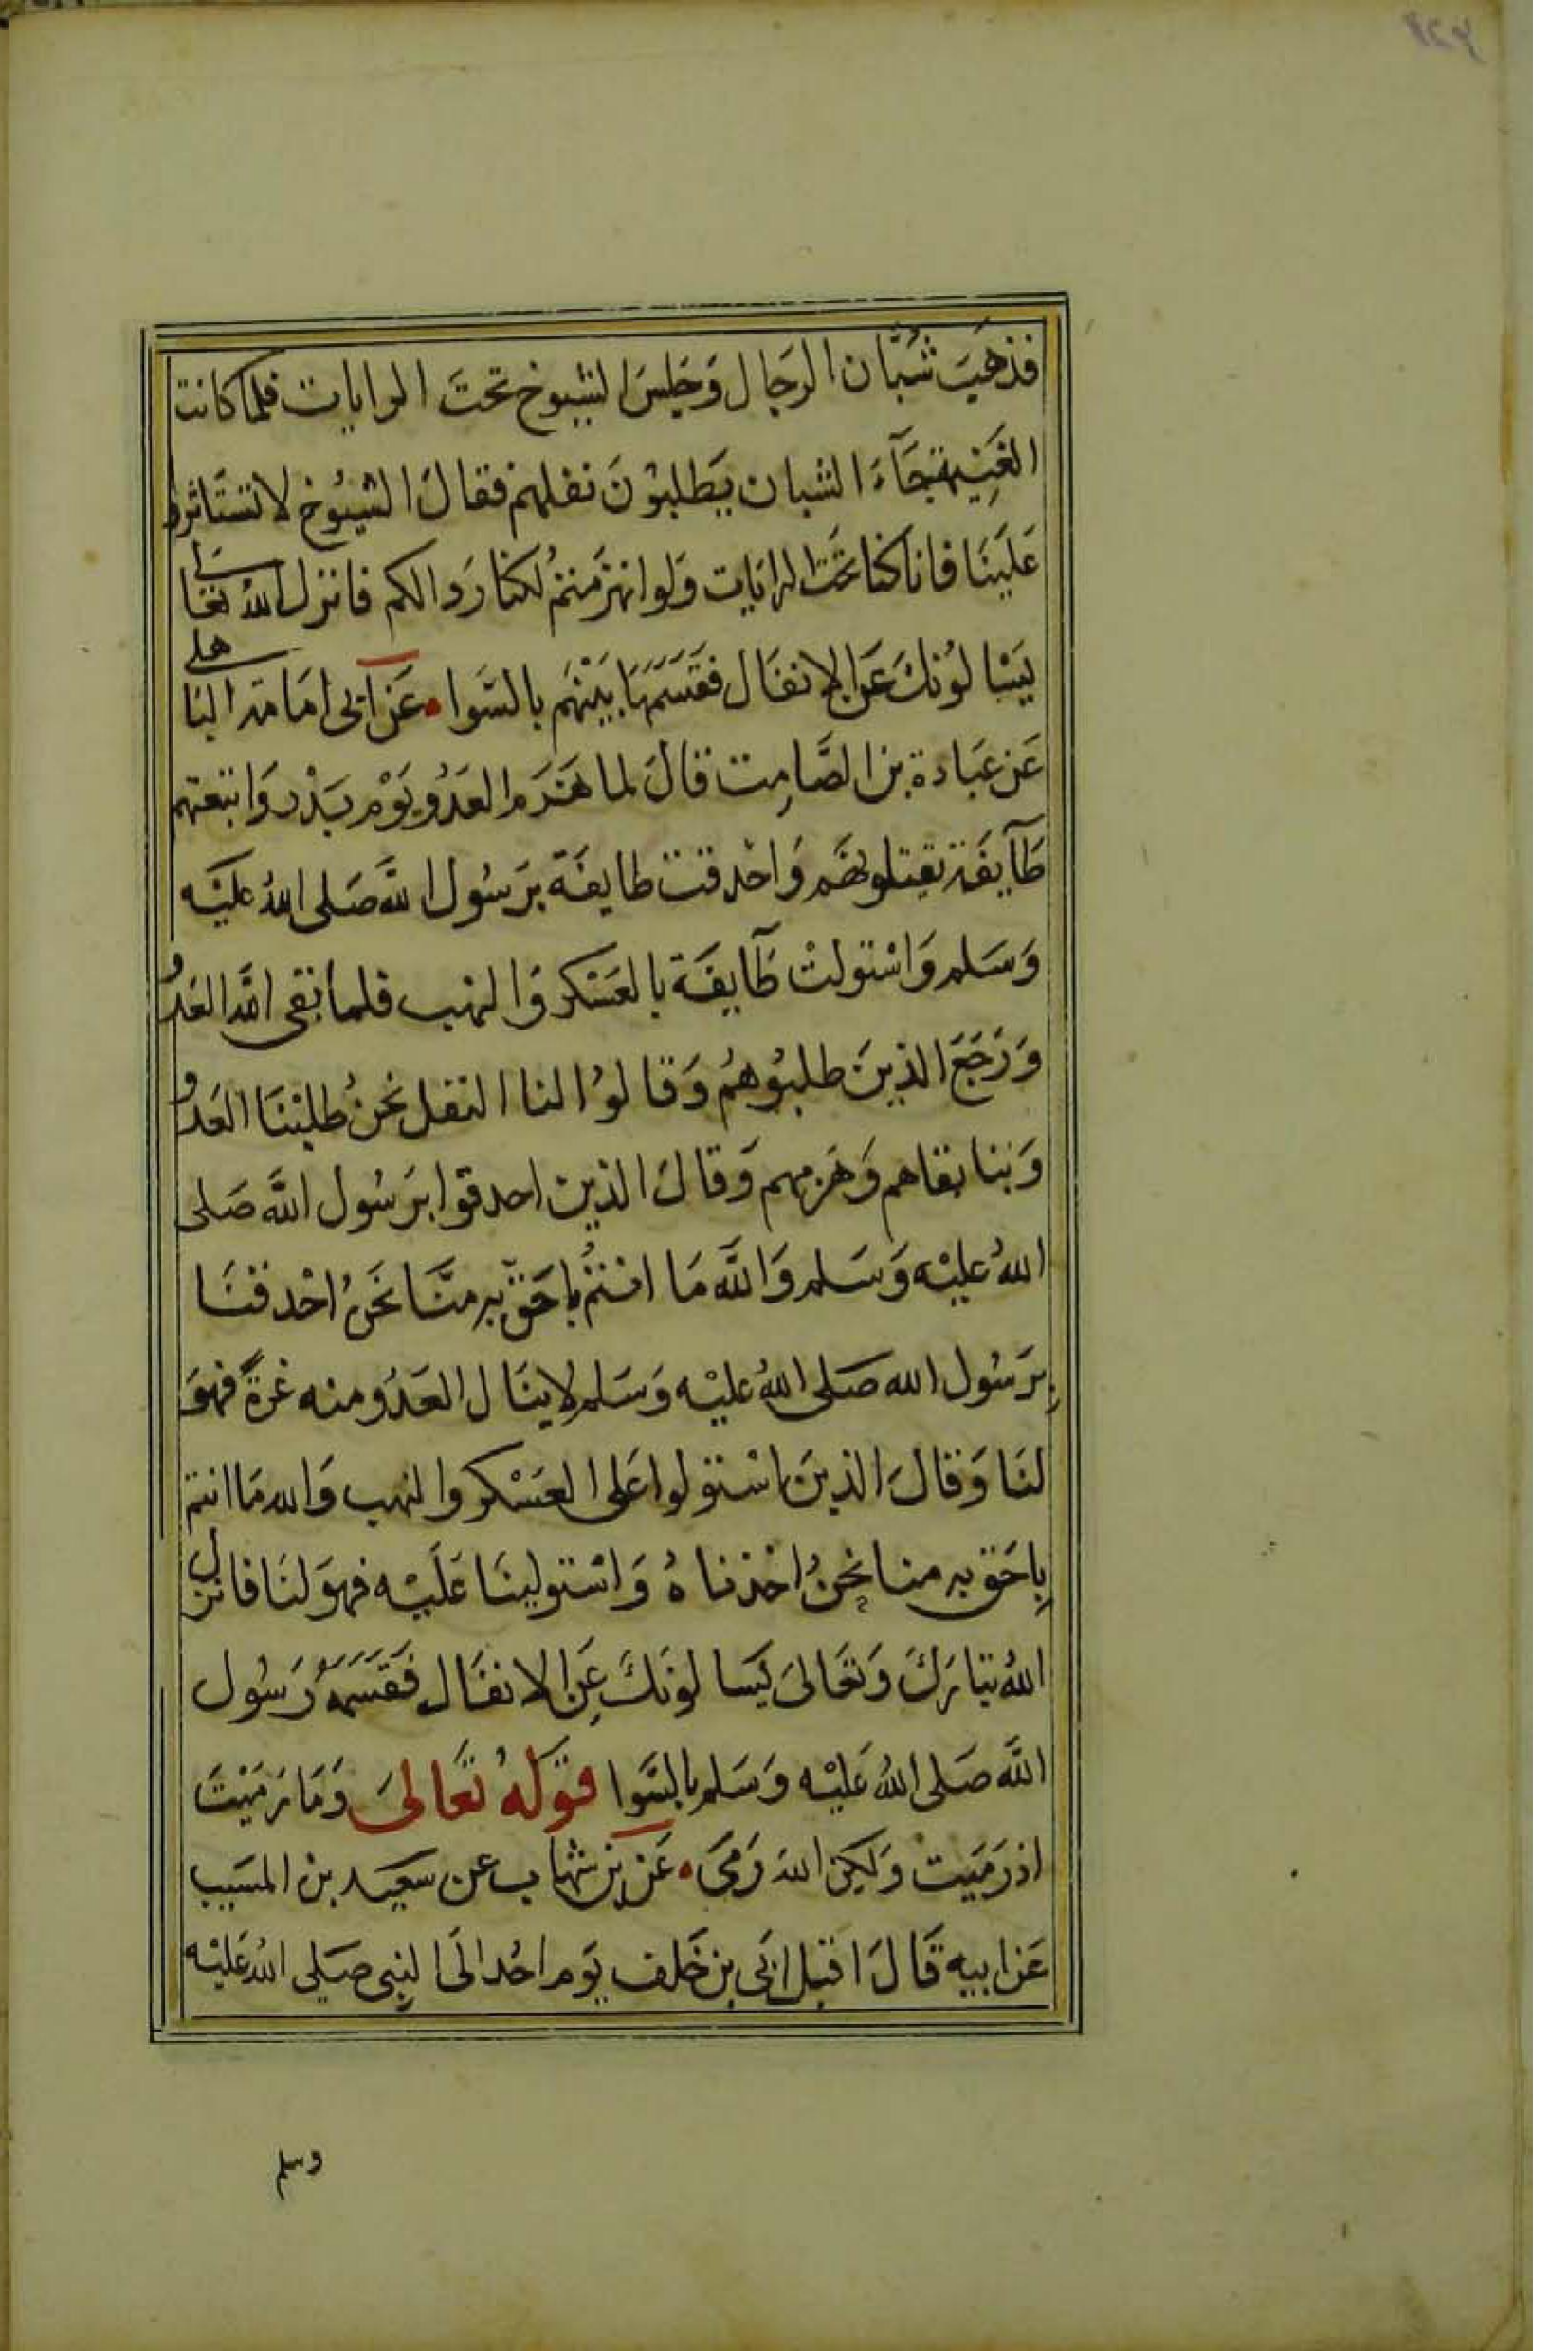 فذهَبَ شُبَّان الرجَال وَجَلسَ الشيوخ تحتَ الرايات فلما كانت
الغَنِيمة جَآءَ الشبان يَطلبوُنَ نفلهم فقالَ الشيُوخ لا تستَاثروا
عَليَنَا فانا كنا تحَت الرايات وَلو انهزمتم لكنا رَدا لكم فانزل الله تعَالى
يَسْالوُنكَ عَن الانفَال فقَسَمَهَا بَيْنهَم بالسَّوا عَن ابى امَامة الباهلى
عَن عبَادة بن الصَّامِت قالَ لما هَزمَ العَدُو يَوْم بَدْر وَاتبعتهم
طآيفَة يقتلونهَم وَاحْدقت طايفَة برَسُول الله صَلى اللهُ عليَه
وَسَلم وَاسْتولتْ طآيفَة بالعَسْكر وَالنهب فلما نقى الله العَدُو
وَرَجَعَ الذينَ طلبُوهُم وَقالوُا لنا النفل نحنُ طلبْنَا العَدُو
وَبنا نقاهم وَهَزمهم وَقالَ الذين احدقوا برَسُول الله صَلى
اللهُ عليْه وَسَلم وَالله مَا انتمُ باحَقّ به منَّا نحَنُ احْدقنَا
برَسُول الله صَلى اللهُ عليْه وَسَلم لاينَال العَدُو منه غرةً فهوَ
لنَا وَقالَ الذينَ استولوا عَلى العَسْكر والنهب وَالله مَا انتم
بِاحَق به منا نحنُ اخذناهُ وَاسْتوليَنَا عَليْه فهوَ لنَا فانزل
اللهُ تبَارَكَ وَتعَالىَ يَسالونكَ عَنِ الانفَال فقَسَمَهُ رَسُول
الله صَلى اللهُ عَليْه وَسَلم بالسَّوا قوَلهُ تعَالىَ وَمَا رَمَيْتَ
اذ رَمَيت وَلكِن اللهَ رَمىَ عَن بن شهاب عن سَعيَد بن المسَيب
عَن ابيه قَالَ اقبَل ابَى بن خَلف يَوم احُد الىَ النبِى صَلى اللهُ عَليْه
وسلم